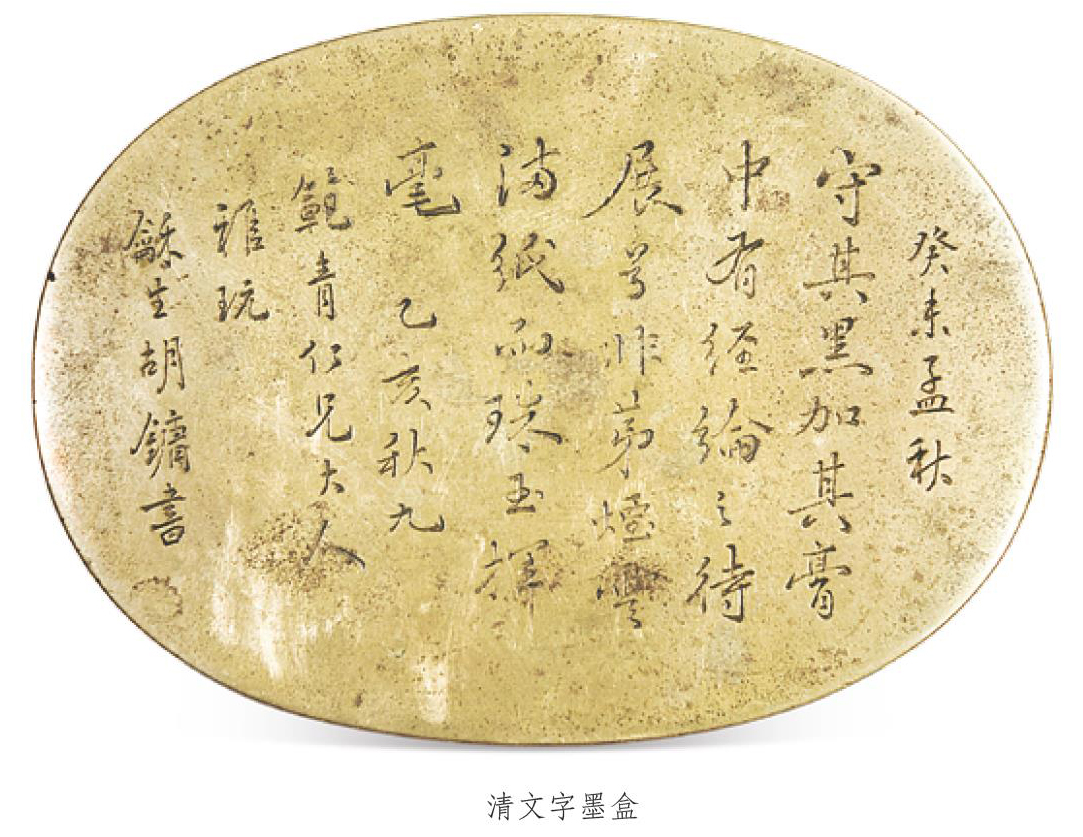 癸未孟秋
守其黑加其膏
中有経綸之待
展兮非第煙雲
满紙而珠玉揮
毫 乙亥秋九
青仁兄大人
雅玩
龢生胡鏞書
清文字墨盒